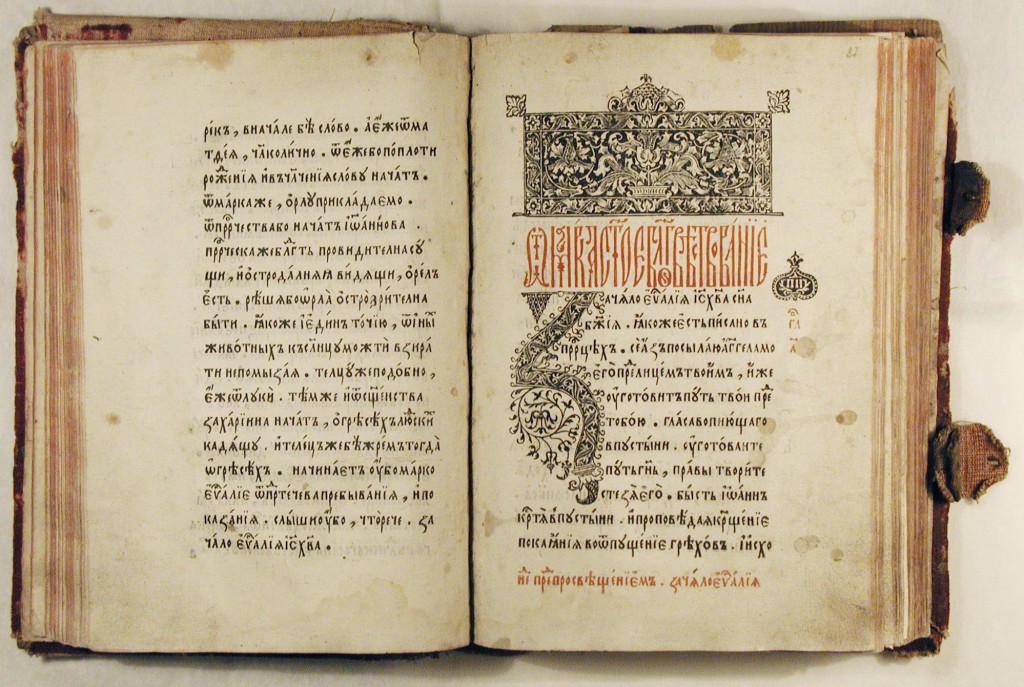 ре́къ, вначале бѣ сло́во. а є́же ѿма
тѳе́я, чл҃коли́чно. ѿє́жебо попло́ти
рож҃е́нїѧ и въчл҃че́нїѧ сло́ву нача́тъ.
ѿма́ркаже, о҆рлу̀ приклада́емо.
ѿпрⷪ҇рчествабо нача́тъ і҆ѡа́ннова.
прⷪ҇рческа жебл҃гть провиди́телна су́
щи, и҆ ѻ҆строда́лняꙗ ви́дѧщи, о҆ре́лъ
є҆́сть. ре́шѧ бо ѡ҆рла̀ о҆строзри́телна
бы́ти. ꙗ҆́коже і҆ є҆ди́нъ то́чїю, ѿи҆ны́
живо́тныхъ къ сл҃нцу мо́жетъ взира́
ти непомыза́ѧ. телцу́же подо́бно,
є҆́же ѿлуки́. тѣ́мже и҆ ѿсщ҃е́нства
заха́рїина нача́тъ, о҆грѣсѣ́хъ лю́скїи
кадѧ́щу. и҆теле́цъ же бѣ̀ жре́мъ тогда̀
ѡ҆грѣсѣ́хъ. начина́етъ у҆́бо ма́рко
є҆ѵⷢ҇алїе ѿпрⷣте́чева пребыва́нїѧ, и҆ по
каза́нїѧ. слы́ши у҆́бо, что̀ рече. за
ча́ло є҆ѵⷢ҇алїѧ і҆с хв҃а.
87
зача́ло є҆ѵⷢ҇алїѧ і҆с хв҃а сн҃а
бж҃їѧ. ꙗ҆́коже є҆́сть пи́сано въ
прⷪ҇рцѣхъ. се́ а҆зъ посыла́ю а҆́гг҃ела мо
є҆го̀ преⷣ лице́мъ твои́мъ, и҆́же
оу҆гото́витъ пу́ть тво́и преⷣ
тобо́ю. гла́съ вопию́щаго
впусты́ни. оу҆гото́ваите
пу́ть гн҃ь, пра́вы твори́те
стезѧ̀ є҆го̀. бы́сть і҆ѡа́ннъ
крⷭ҇тѧ̀ впусты́ни. и҆ проповѣ́даѧ крⷳ҇щенїе
покаѧ́нїѧ во ѿпуще́нїе грѣхо́въ. и҆ исхо
неⷣ преⷣ просвѣще́нїемъ. зача́ло є҆ѵⷢ҇алїѧ